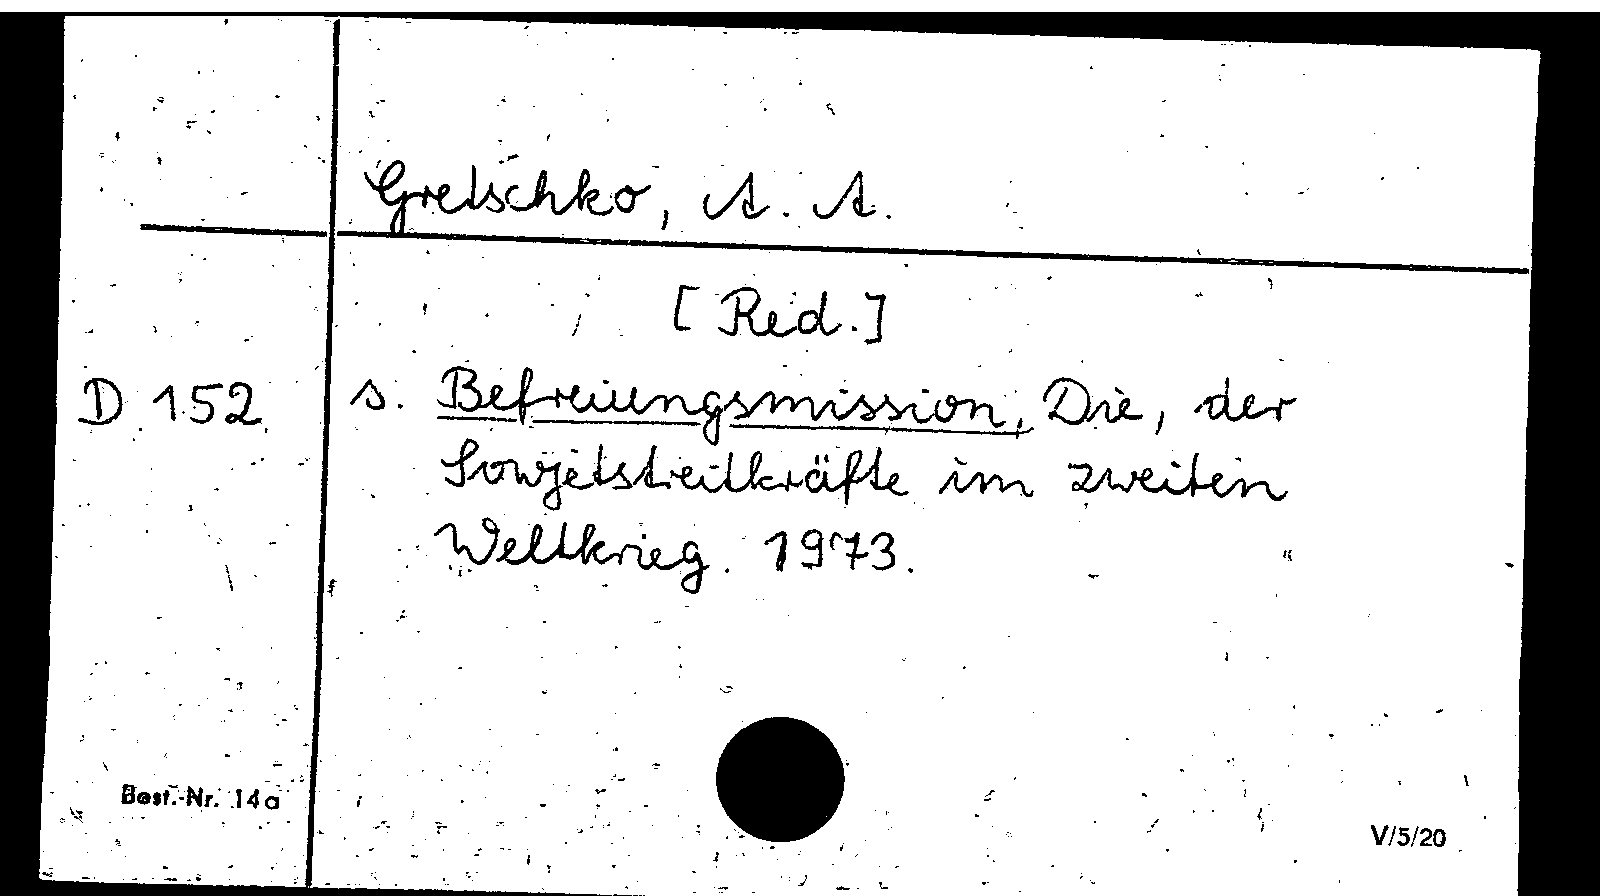 Gretschko, A. A.
[Red.]
D 152 s. Befreiungsmission, Die, der
Sowjetstreitkräfte im zweiten
Weltkrieg. 1973.
Best.-Nr. 14a
V/5/20